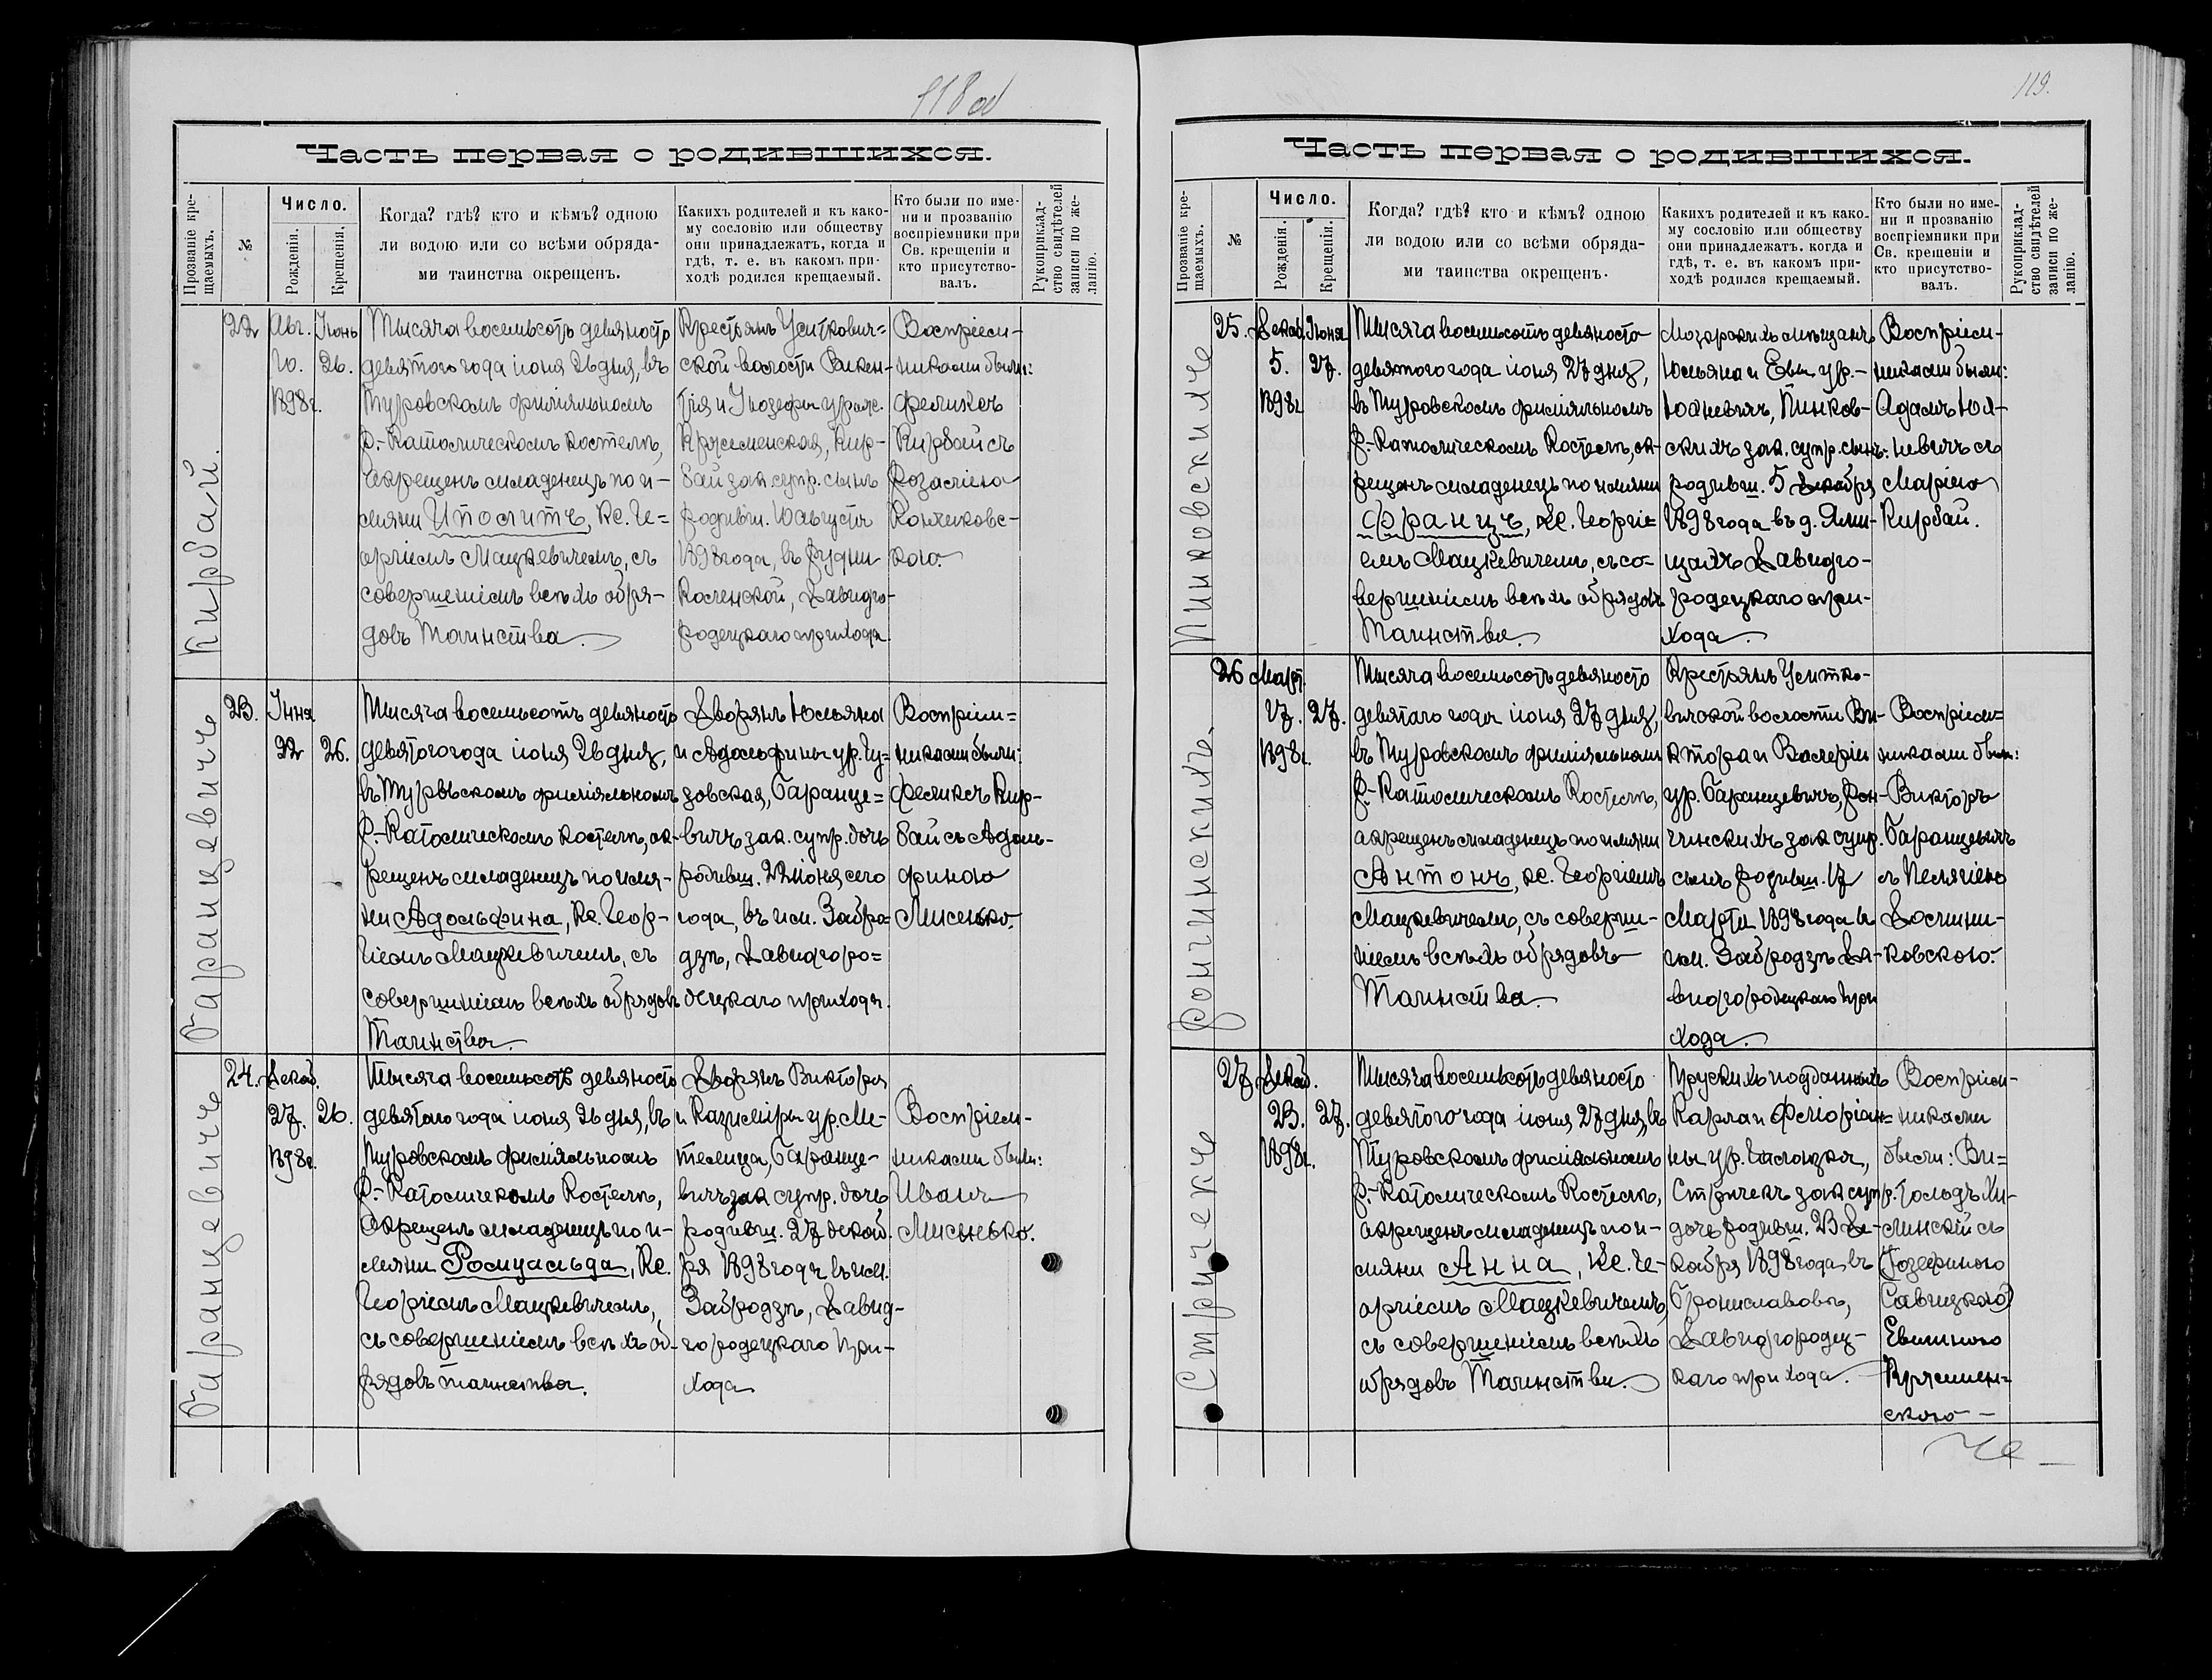 118 об
Часть первая о родившихся.
Прозваніе кре-
щаемыхъ.
№
Число.
Рожденія.
Крещенія.
Когда? гдѣ? кто и кѣмъ? одною
ли водою или со всѣми обряда-
ми таинства окрещенъ.
Какихъ родителей и къ како-
му сословію или обществу
они принадлежатъ, когда и
гдѣ, т. е. въ какомъ при-
ходѣ родился крещаемый.
Кто были по име-
ни и прозванію
воспріемники при
Св. крещеніи и
кто присутство-
валъ.
Рукоприклад-
ство свидѣтелей
записи по же-
ланію.
Кирбай.
22
Авг.
10.
1898г.
Іюнь
26.
Тысяча восемьсотъ девяносто
девятого года іюня 26 дня, въ
Туровскомъ филіяльномъ
Р.-Католическомъ костелѣ,
окрещенъ младенецъ по и-
мяни Ипосить, Кс. Ге=
оргіемъ Мацкевичемъ, съ
совершеніемъ всѣхъ обря-
довъ Таинства.
Крестьянъ
ской волости Викен-
тія и Іюзефы урож.
Кржеменская, Кир-
бай зак. супр. сынъ
родивш. 10 августа
1898 года, въ Рудни
Давидго-
родецкаго прихода.
Воспріем-
никами были:
Феликсъ
Кирбай съ
Розалією
кою.
Баранцевичъ
23.
Іюня
22
26.
Тысяча восемьсотъ девяносто
девятого года іюня 26 дня,
въ Туровскомъ филіяльномъ
Р.-Католическомъ костелѣ, ок-
рещенъ младенецъ по имя-
ни Адольфина, Кс. Геор-
гіемъ Мацкевичемъ, съ
совершеніемъ всѣхъ обрядовъ
Таинства.
Дворянъ Юльяна
и Адольфины ур. Гу-
зовская, Баранце=
вичъ зак. супр. дочь
родивш. 22 іюня сего
года, въ им. Забро=
дзѣ, Давидгоро=
децкаго прихода.
Воспріем=
никами были:
Феликсъ Кир-
бай съ Адоль-
финою
Мисенько.
Баранцевичъ
24.
Декаб.
27.
1898г.
26.
Тысяча восемьсотъ девяносто
девятаго года іюня 26 дня, въ
Туровскомъ филіяльномъ
Р.-Католическомъ Костелѣ,
Окрещенъ младенецъ по и-
мяни Ромуальда, Кс.
Георгіемъ Мацкевичемъ,
съ совершеніемъ всѣхъ об-
рядовъ таинства.
Дворянъ Виктора
и Казиміры ур. Ме-
телица, Баранце-
вичъ зак супр. дочь
родивш. 27 декаб.
ря 1898 года въ им.
Забродзѣ, Давид-
городецкаго при-
хода
Воспріем-
никами были:
Иванъ
Мисенько.
119.
Часть первая о родившихся.
Прозваніе кре-
щаемыхъ.
№
Число.
Рожденія.
Крещенія.
Когда? гдѣ? кто и кѣмъ? одною
ли водою или со всѣми обряда-
ми таинства окрещенъ.
Какихъ родителей и къ како-
му сословію или обществу
они принадлежатъ. когда и
гдѣ, т. е. въ какомъ при-
ходѣ родился крещаемый.
Кто были по име-
ни и прозванію
воспріемники при
Св. крещеніи и
кто присутство-
валъ.
Рукоприклад-
ство свидѣтелей
записи по же-
ланію.
Пинковскихъ
25.
Декаб.
5.
1898г.
Іюня
27.
Тысяча восемьсотъ девяносто
девятого года іюня 27 дня,
въ Туровскомъ филіяльномъ
Р.-Католическомъ Костелѣ, ок-
рещенъ младенецъ по имяни
Францъ, Кс. Георгіе=
емъ Мацкевичемъ, съ со-
вершеніемъ всѣхъ обрядовъ
Таинства.
Мозырскихъ мѣщанъ
Юльяна и Евы ур.-
Юхневичъ, Пинков-
скихъ зак. супр. сынъ
родивш. 5 Декабря
1898 года въ д.
Давидго-
родецкаго при-
хода.
Воспріем-
никами были:
Адамъ Юх-
невичъ съ
Марією
Кирбай.
Рончинскихъ.
26
Март.
17.
1898г.
27.
Тысяча восемьсотъ девяносто
девятаго года іюня 27 дня,
въ Туровскомъ филіяльномъ
Р.-Католическомъ Костелѣ,
окрещенъ младенецъ по имяни
Антонъ, Кс. Георгіемъ
Мацкевичемъ, съ соверше-
ніемъ всѣхъ обрядовъ
Таинства.
Крестьянъ
волости Ви-
ктора и Валеріи
ур. Баранцевичъ, Рон-
чинскихъ зак супр.
сынъ родивш. 17
Марта 1898 года въ
им. Забродзѣ Да-
видгородецкаго при
хода.
Воспріем=
никами были:
Викторъ
Баранцевичъ
съ Пелягією
ковскою.
Стричекъ
27
Декаб.
23.
1898г.
27.
Тысяча восемьсотъ девяносто
девятого года іюня 27 дня, въ
Туровскомъ филіяльномъ
Р.-Католическомъ Костелѣ,
окрещенъ младенецъ по и-
мяни Анна, Кс. Ге-
оргіемъ Мацкевичемъ,
съ совершеніемъ всѣхъ
обрядовъ Таинства.
Прускихъ подданныхъ
Карла и Флоріан=
ны ур.
Стричекъ зак супр.
дочь родивш. 23 Де-
кабря 1898 года въ
Брониславовѣ,
Давидгородец-
каго прихода.
Воспріем-
никами
были: Ви=
тольдъ Хи-
линскій съ
Іозефиною
Савицкою
Евелиною
Кржемен=
скою